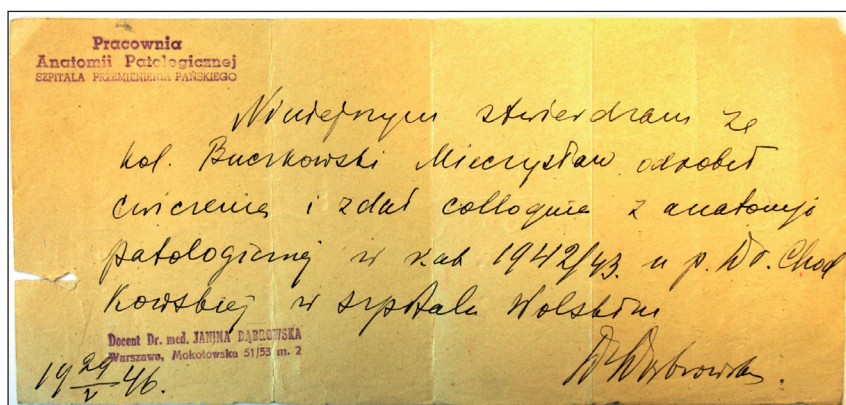 Pracownia
Anatomii Patologicznej
SZPITALA PRZEMIENIENIA PAŃSKIEGO
Niniejszym stwierdzam że
kol. Buczkowski Mieczysław odrobił
ćwiczenia i zdał colloquia z anatomji
patologicznej w r. ak 1942/43. u p. Dr. Chod
kowskiej w szpitalu Wolskim
Docent Dr. med. JANINA DĄBROWSKA
Warszawa, Mokotowska 51/53 m. 2
19 29/V 46.
Dąbrowska.